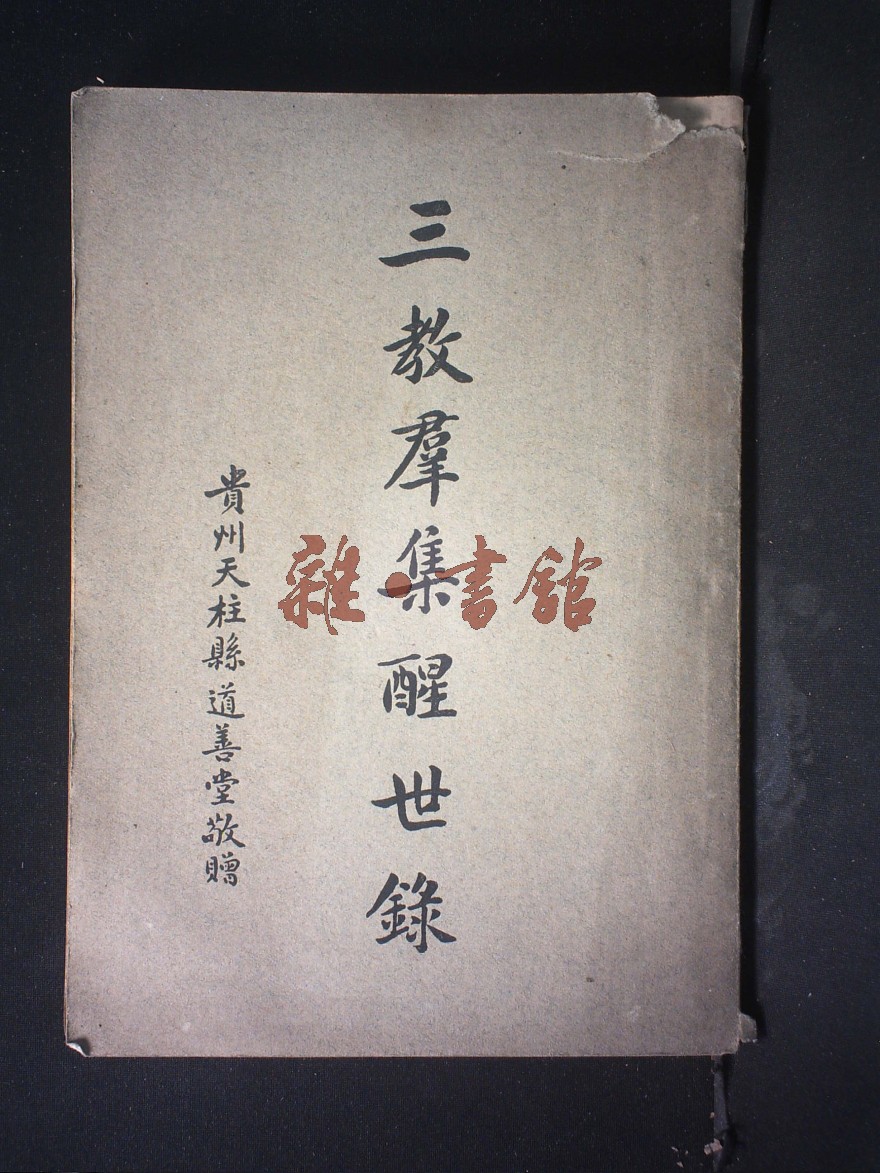 三教羣集醒世錄
貴州天柱縣道善堂敬贈
雜書館